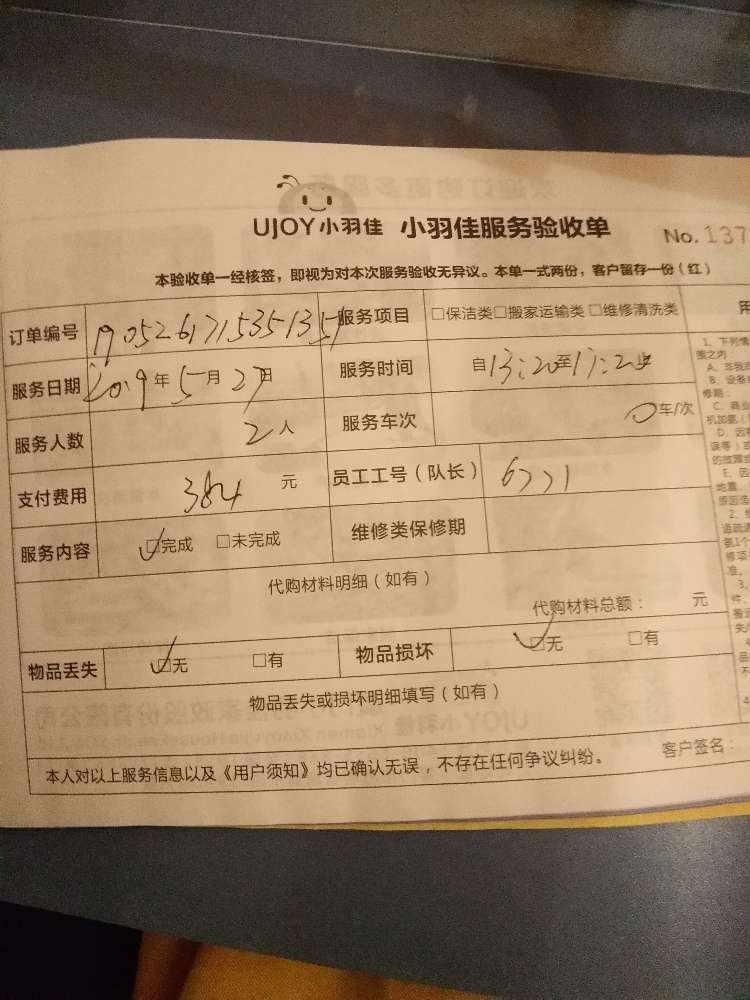 UJOY小羽佳 小羽佳服务验收单 No.137
本验收单一经核签，即视为对本次服务验收无异议。本单一式两份，客户留存一份（红）
订单编号 服务项目 □保洁类□搬家运输类□维修清洗类
服务日期 2019年5月27日 服务时间 自13:20至17:20止
服务人数 2人 服务车次 0车/次
支付费用 384元 员工工号（队长） 6771
服务内容 ☑完成 □未完成 维修类保修期
代购材料明细（如有）
代购材料总额： 元
物品丢失 ☑无 □有 物品损坏 ☑无 □有
物品丢失或损坏明细填写（如有）
本人对以上服务信息以及《用户须知》均已确认无误，不存在任何争议纠纷。 客户签名：